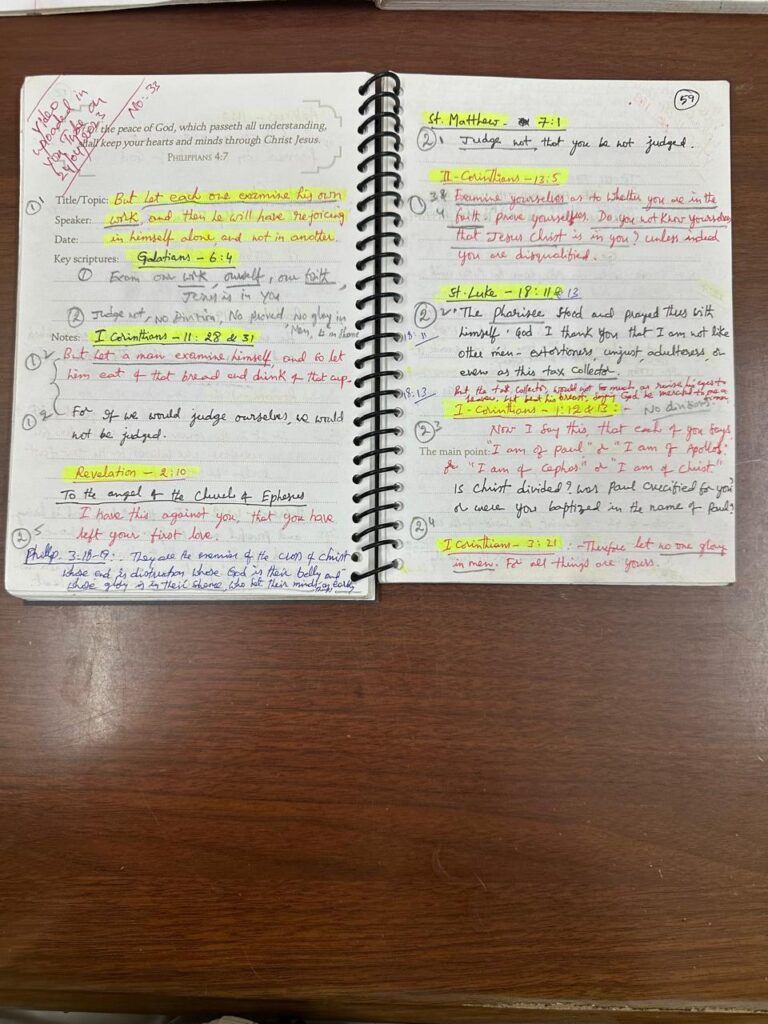 Video
uploaded in
You Tube on
No:- 33
of the peace of God, which passeth all understanding,
shall keep your hearts and minds through Christ Jesus.
PHILIPPIANS 4:7
① 1 Title/Topic: But let each one examine his own
Speaker: work, and then he will have rejoicing
Date: in himself alone, and not in another.
Key scriptures: Galatians - 6:4
① Exam our work, ourself, our faith,
Jesus is in You
② Judge not, No Division, No proved, No glory in
Men,
Notes: I Corinthians - 11: 28 & 31
① 2 But let a man examine himself, and so let
him eat of that bread and drink of that cup.
① 2 For if we would judge ourselves, we would
not be judged.
Revelation - 2:10
To the angel of the Church of Ephesus
I have this against you, that you have
left your first love.
② 5
Philip. 3-18-19:- They are the enemies of the cross of Christ
whose end is distruction whose God is their belly and
whose glory is in their shame, who set their minds on earthly
59
St. Matthew - 7:1
② 1 Judge not, that you be not judged.
II - Corinthians - 13:5
① 3 & 4 Examine yourselves as to whether you are in the
faith. prove yourselves. Do you not know yourselves
that Jesus Christ is in you? unless indeed
you are disqualified.
St. Luke - 18: 11 & 13
② 2 The pharisee stood and prayed thus with
18:11 himself. God I thank you that I am not like
other men - extortioners, unjust, adulterers, or
even as this tax collector.
18:13 But the tax collector, would not so much as raise his eyes to
heaven, but beat his breast, saying God be merciful to me a
I - Corinthians - 1:12 & 13:- No division
② 3 Now I say this, that each of you says
The main point: "I am of Paul" or "I am of Apollos"
or "I am of Cephas" or "I am of Christ"
Is Christ divided? was Paul crucified for you?
or were you baptized in the name of Paul?
② 4
I Corinthians - 3:21 :- Therefore let no one glory
in men. For all things are yours.